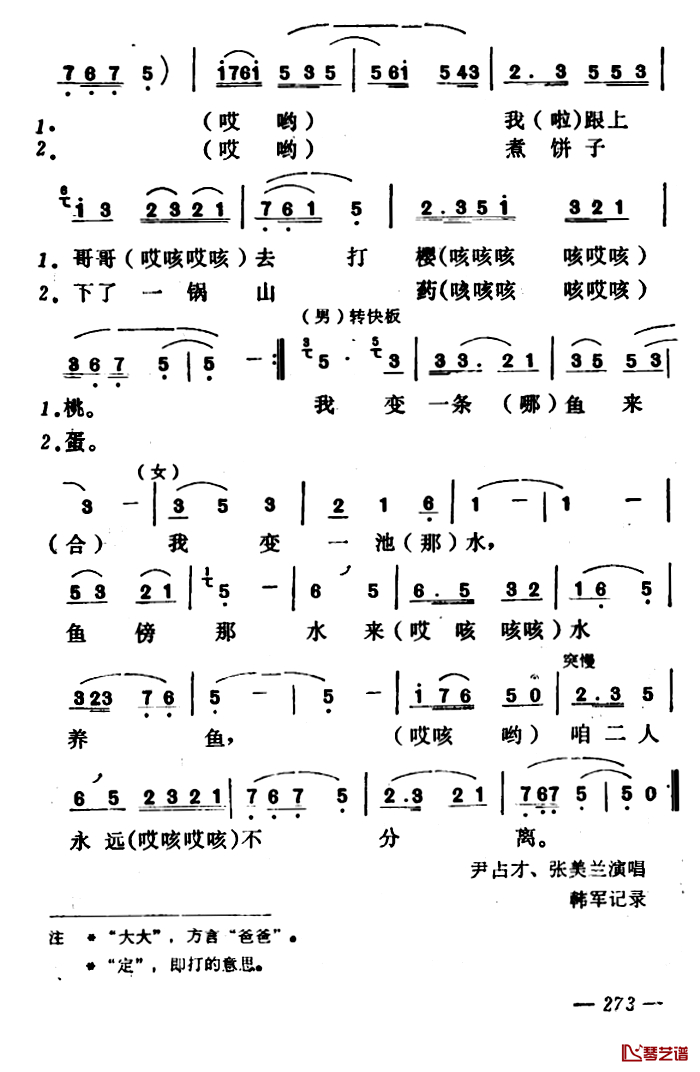 7 6 7 5 ) | i 7 6 i 5 3 5 | 5 6 i 5 4 3 | 2. 3 5 5 3 |
1. (哎 哟) 我(啦)跟上
2. (哎 哟) 煮 饼 子
i 3 2 3 2 1 | 7 6 1 5 | 2. 3 5 i 3 2 1 |
1. 哥哥(哎咳哎咳)去 打 樱(咳咳咳 咳哎咳)
2. 下了 一 锅 山 药(咳咳咳 咳哎咳)
(男)转快板
3 6 7 5 | 5 - :‖ 5 · 3 | 3 3. 2 1 | 3 5 5 3 |
1. 桃。 我 变 一 条 (哪) 鱼 来
2. 蛋。
(女)
3 - | 3 5 3 | 2 1 6 | 1 - | 1 - |
(合) 我 变 一 池(那)水,
5 3 2 1 | 5 - | 6 5 | 6. 5 3 2 | 1 6 5 |
鱼 傍 那 水 来(哎 咳 咳咳)水
突慢
3 2 3 7 6 | 5 - | 5 - | i 7 6 5 0 | 2. 3 5 |
养 鱼, (哎咳 哟) 咱 二 人
6 5 2 3 2 1 | 7 6 7 5 | 2. 3 2 1 | 7 6 7 5 | 5 0 ‖
永 远(哎咳哎咳)不 分 离。
尹占才、张美兰演唱
韩军记录
注 * “大大”，方言“爸爸”。
* “定”，即打的意思。
— 273 —
琴艺谱